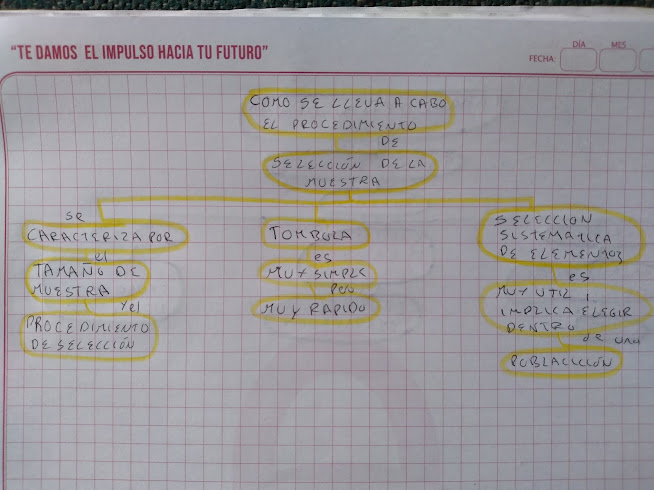 "TE DAMOS EL IMPULSO HACIA TU FUTURO"
DÍA
MES
FECHA:
COMO SE LLEVA A CABO
EL PROCEDIMIENTO
DE
SELECCIÓN DE LA
MUESTRA
se
CARACTERIZA POR
el
TAMAÑO DE
MUESTRA
y el
PROCEDIMIENTO
DE SELECCIÓN
TOMBOLA
es
MUY SIMPLE
MUY RAPIDO
SELECCION
SISTEMATICA
DE ELEMENTOS
es
MUY UTIL i
IMPLICA ELEGIR
DENTRO
de una
POBLACICIÓN